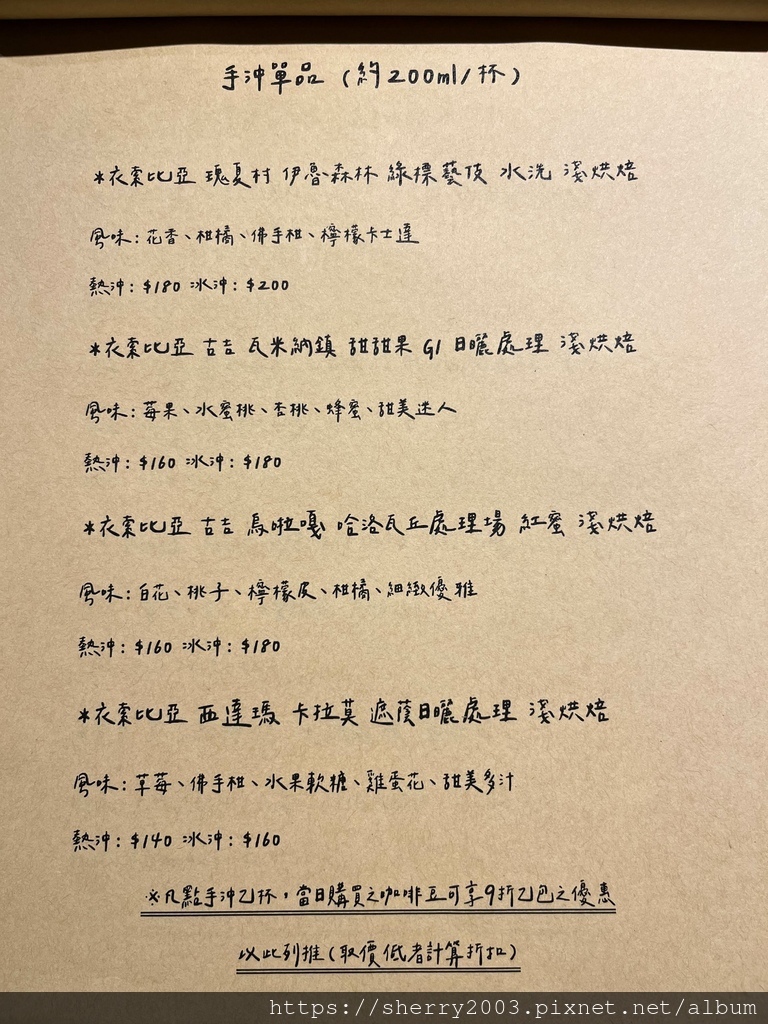 手沖單品 (約200ml/杯)
*衣索比亞 瑰夏村 伊魯森林 綠標藝伎 水洗 淺烘焙
風味:花香、柑橘、佛手柑、檸檬卡士達
熱沖:$180 冰沖:$200
*衣索比亞 古吉 瓦米納鎮 甜甜果 G1 日曬處理 淺烘焙
風味:莓果、水蜜桃、杏桃、蜂蜜、甜美迷人
熱沖:$160 冰沖:$180
*衣索比亞 古吉 烏啦嘎 哈洛瓦丘處理場 紅蜜 淺烘焙
風味:白花、桃子、檸檬皮、柑橘、細緻優雅
熱沖:$160 冰沖:$180
*衣索比亞 西達瑪 卡拉莫 遮蔭日曬處理 淺烘焙
風味:草莓、佛手柑、水果軟糖、雞蛋花、甜美多汁
熱沖:$140 冰沖:$160
※凡點手沖乙杯,當日購買之咖啡豆可享9折乙包之優惠
以此列推(取價低者計算折扣)
https://sherry2003.pixnet.net/album